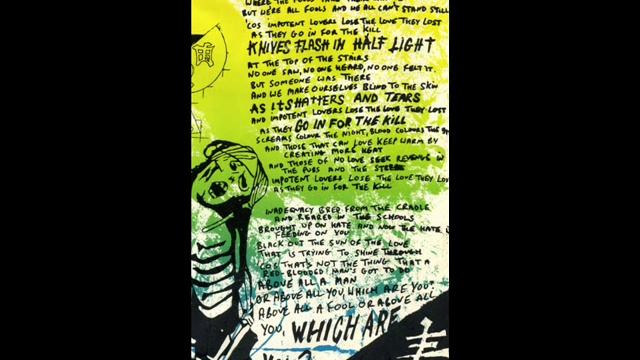 BUT WE'RE ALL FOOLS AND WE ALL CAN'T STAND STILL
'COS IMPOTENT LOVERS LOSE THE LOVE THEY LOST
AS THEY GO IN FOR THE KILL
KNIVES FLASH IN HALF LIGHT
AT THE TOP OF THE STAIRS
NO ONE SAW, NO ONE HEARD, NO ONE FELT IT.
BUT SOMEONE WAS THERE
AND WE MAKE OURSELVES BLIND TO THE SKIN
AS IT SHATTERS AND TEARS
AND IMPOTENT LOVERS LOSE THE LOVE THEY LOST
AS THEY GO IN FOR THE KILL
SCREAMS COLOUR THE NIGHT, BLOOD COLOURS THE
AND THOSE THAT CAN LOVE KEEP WARM BY
CREATING MORE HEAT
AND THOSE OF NO LOVE SEEK REVENGE IN
THE PUBS AND THE
IMPOTENT LOVERS LOSE THE LOVE THEY
AS THEY GO IN FOR THE KILL
INADEQUACY BRED FROM THE CRADLE
AND REARED IN THE SCHOOLS
BROUGHT UP ON HATE AND NOW THE HATE IS
FEEDING ON YOU
BLACK OUT THE SUN OF THE LOVE
THAT IS TRYING TO SHINE THROUGH
'COS THAT'S NOT THE THING THAT A
RED-BLOODED MAN'S GOT TO DO
ABOVE ALL A MAN
OR ABOVE ALL YOU, WHICH ARE YOU?
ABOVE ALL A FOOL OR ABOVE ALL
YOU, WHICH ARE